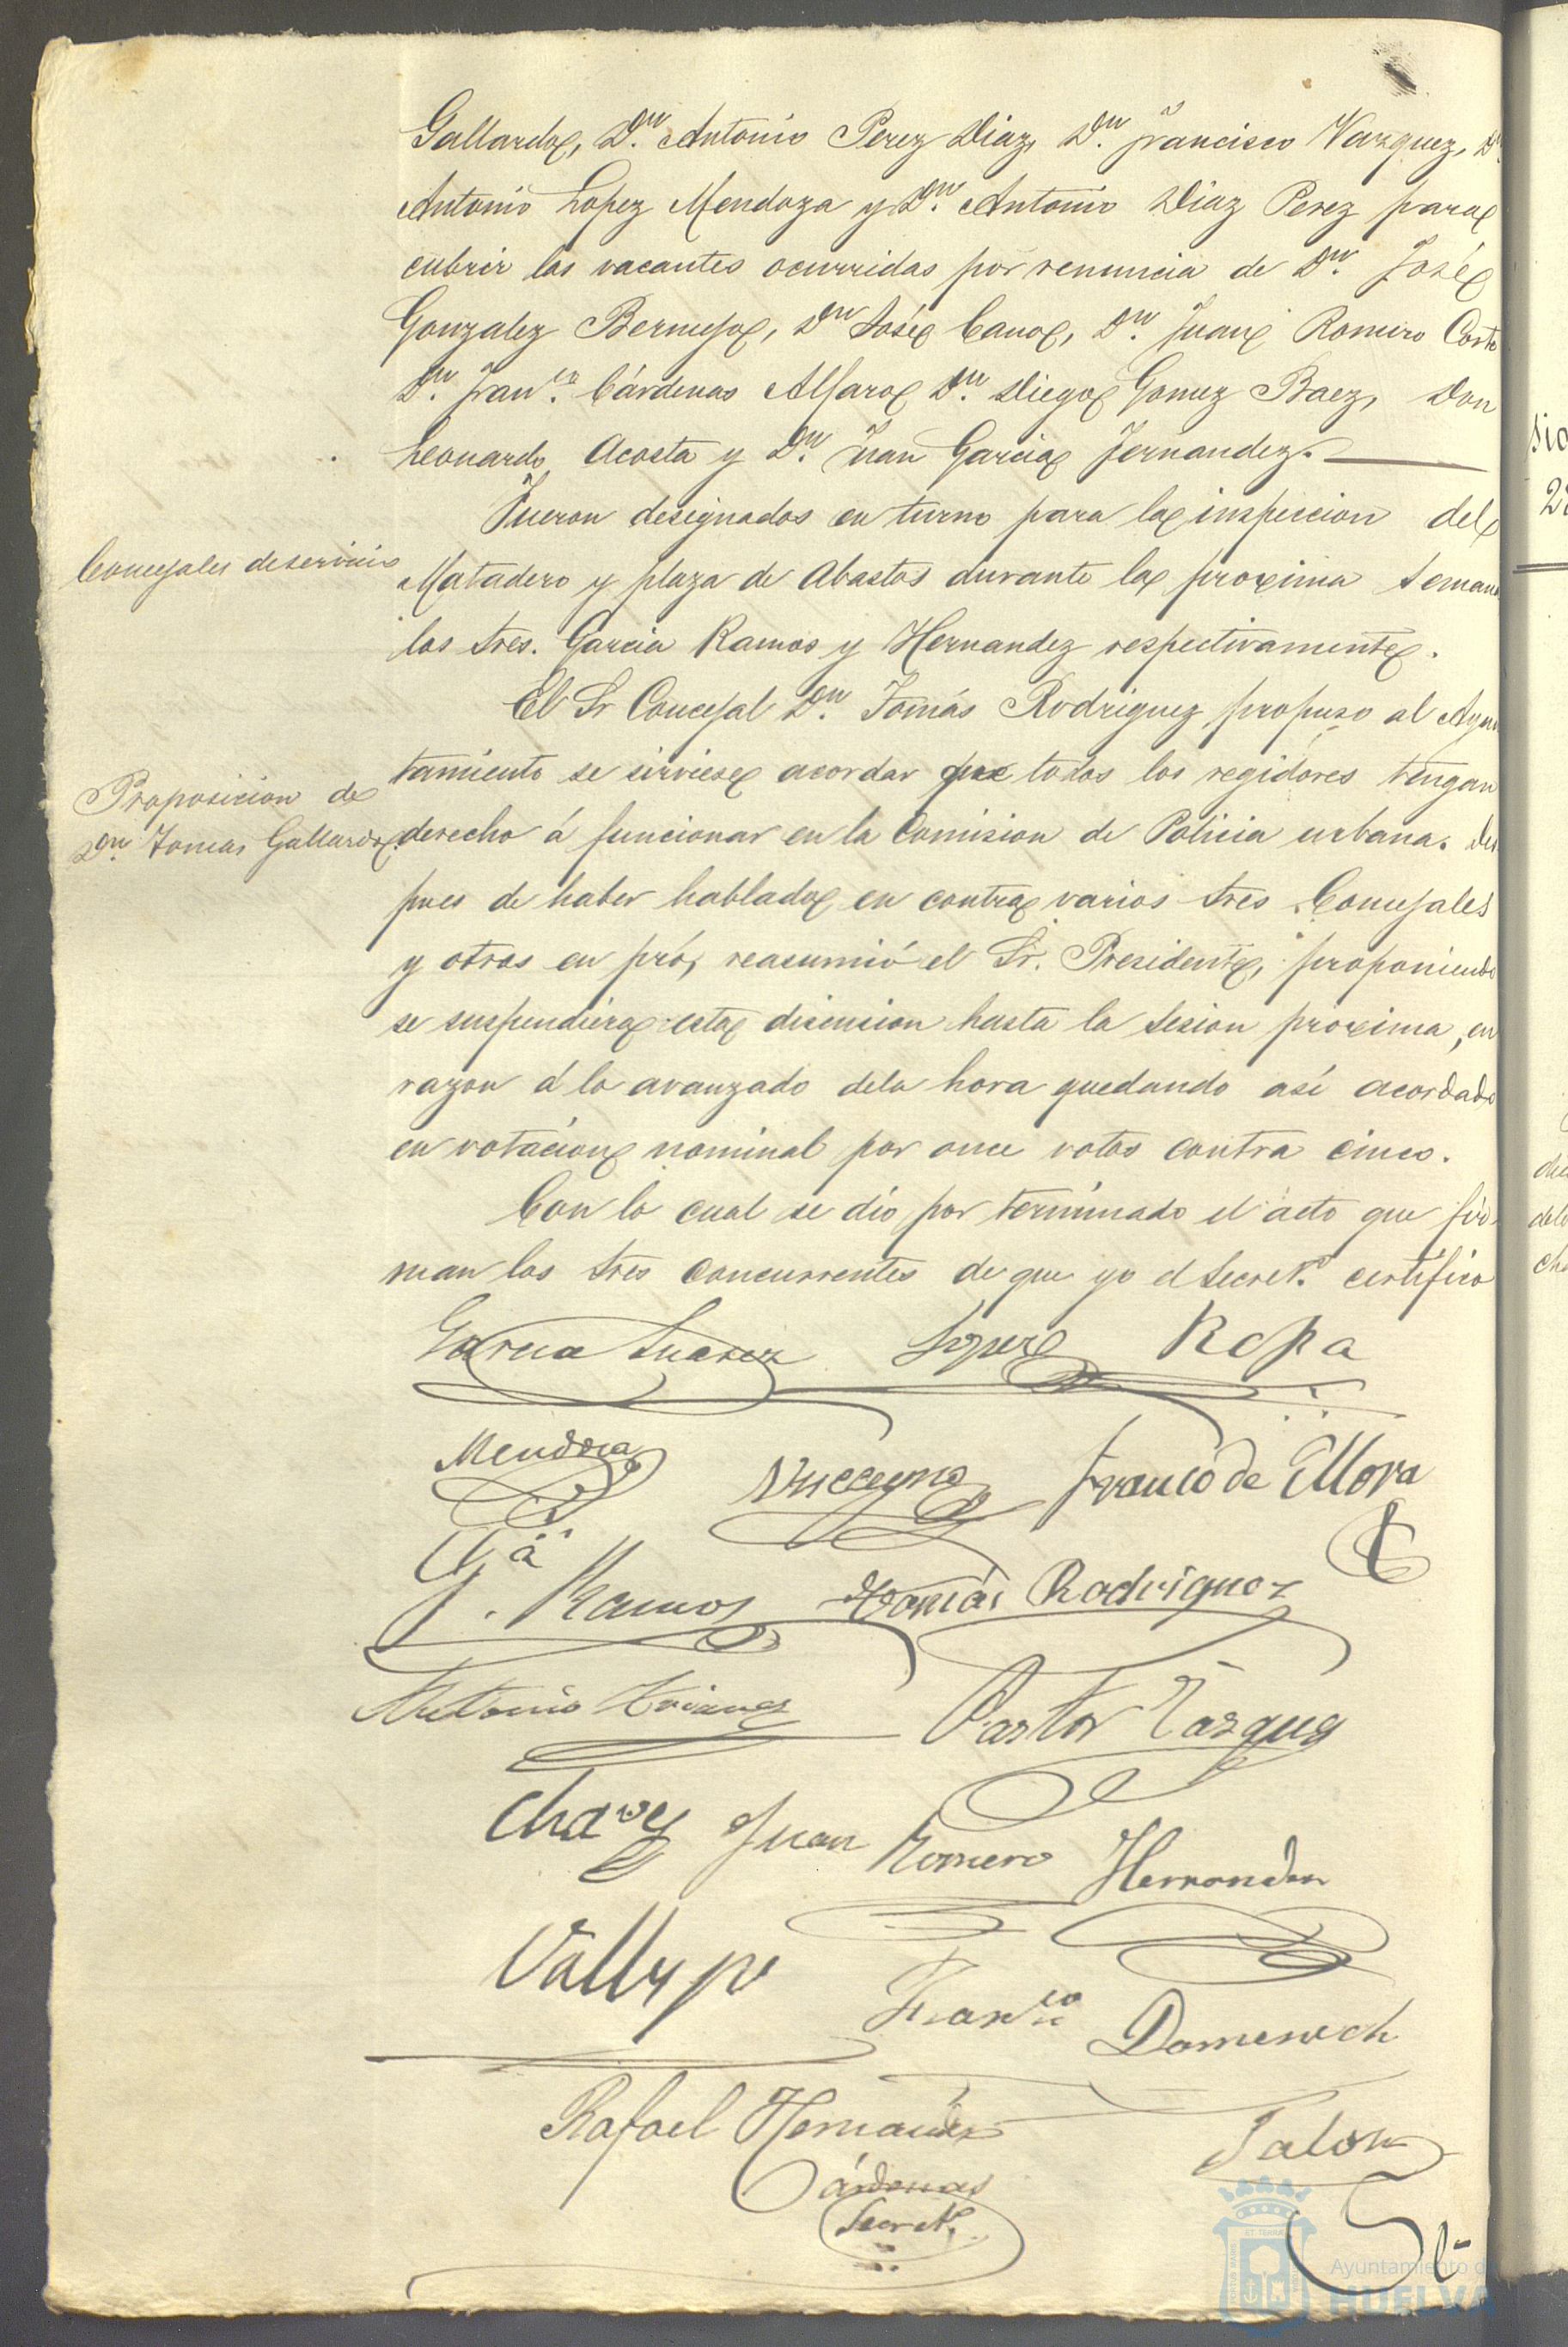 Gallardo, Dn. Antonio Perez Diaz, Dn. Francisco Vazquez, Dn.
Antonio Lopez Mendoza y Dn. Antonio Diaz Perez para
cubrir las vacantes ocurridas por renuncia de Dn. José
Gonzalez Bermejo, Dn José Cano, Dn. Juan Romero Corte
Dn. Franco. Cárdenas Alfaro Dn. Diego Gomez Baez, Don
Leonardo Acosta y Dn. Juan Garcia Fernandez.
Fueron designados en turno para la inspeccion del
Concejales de servicio
Matadero y plaza de Abastos durante la proxima semana
los Sres. Garcia Ramos y Hernandez respectivamente.
El Sr Concejal Dn. Tomás Rodriguez propuso al Ayun
Proposicion de
Dn. Tomas Gallardo
tamiento se sirviese acordar que todos los regidores tengan
derecho á funcionar en la Comision de Policia urbana. Des
pues de haber hablado en contra varios Sres Concejales
y otros en pró, reasumió el Sr. Presidente, proponiendo
se suspendiera esta discusion hasta la sesion proxima, en
razon á lo avanzado dela hora quedando así acordado
en votacion nominal por once votos contra cinco.
Con lo cual se dio por terminado el acto que fir-
man los Sres concurrentes de que yo el Secreto. certifico
Garcia Suarez Lopez Repa
Mendoza Franco de Mora
Ga
J. Ramos Tomás Rodriguez
Antonio Pastor Vazquez
Chavez Juan Romero Hernandez
Franco Domenech
Rafael Hernandez
Cárdenas
Secreto.
Talon
Ayuntamiento de
HUELVA